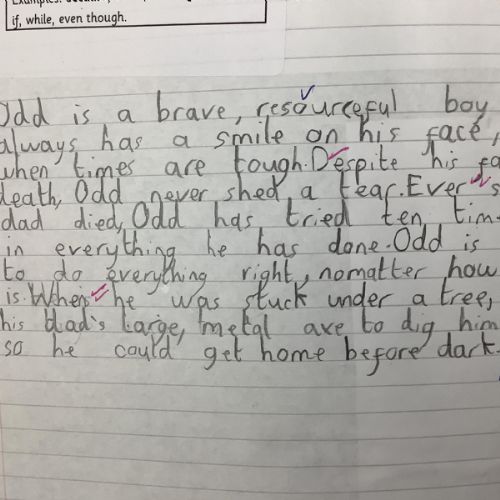 if, while, even though.
Odd is a brave, resourceful boy
always has a smile on his face,
when times are tough. Despite his fa
death, Odd never shed a tear. Ever s
dad died, Odd has tried ten tim
in everything he has done. Odd is
to do everything right, nomatter how
is. When he was stuck under a tree,
his dad's large, metal axe to dig him
so he could get home before dark.